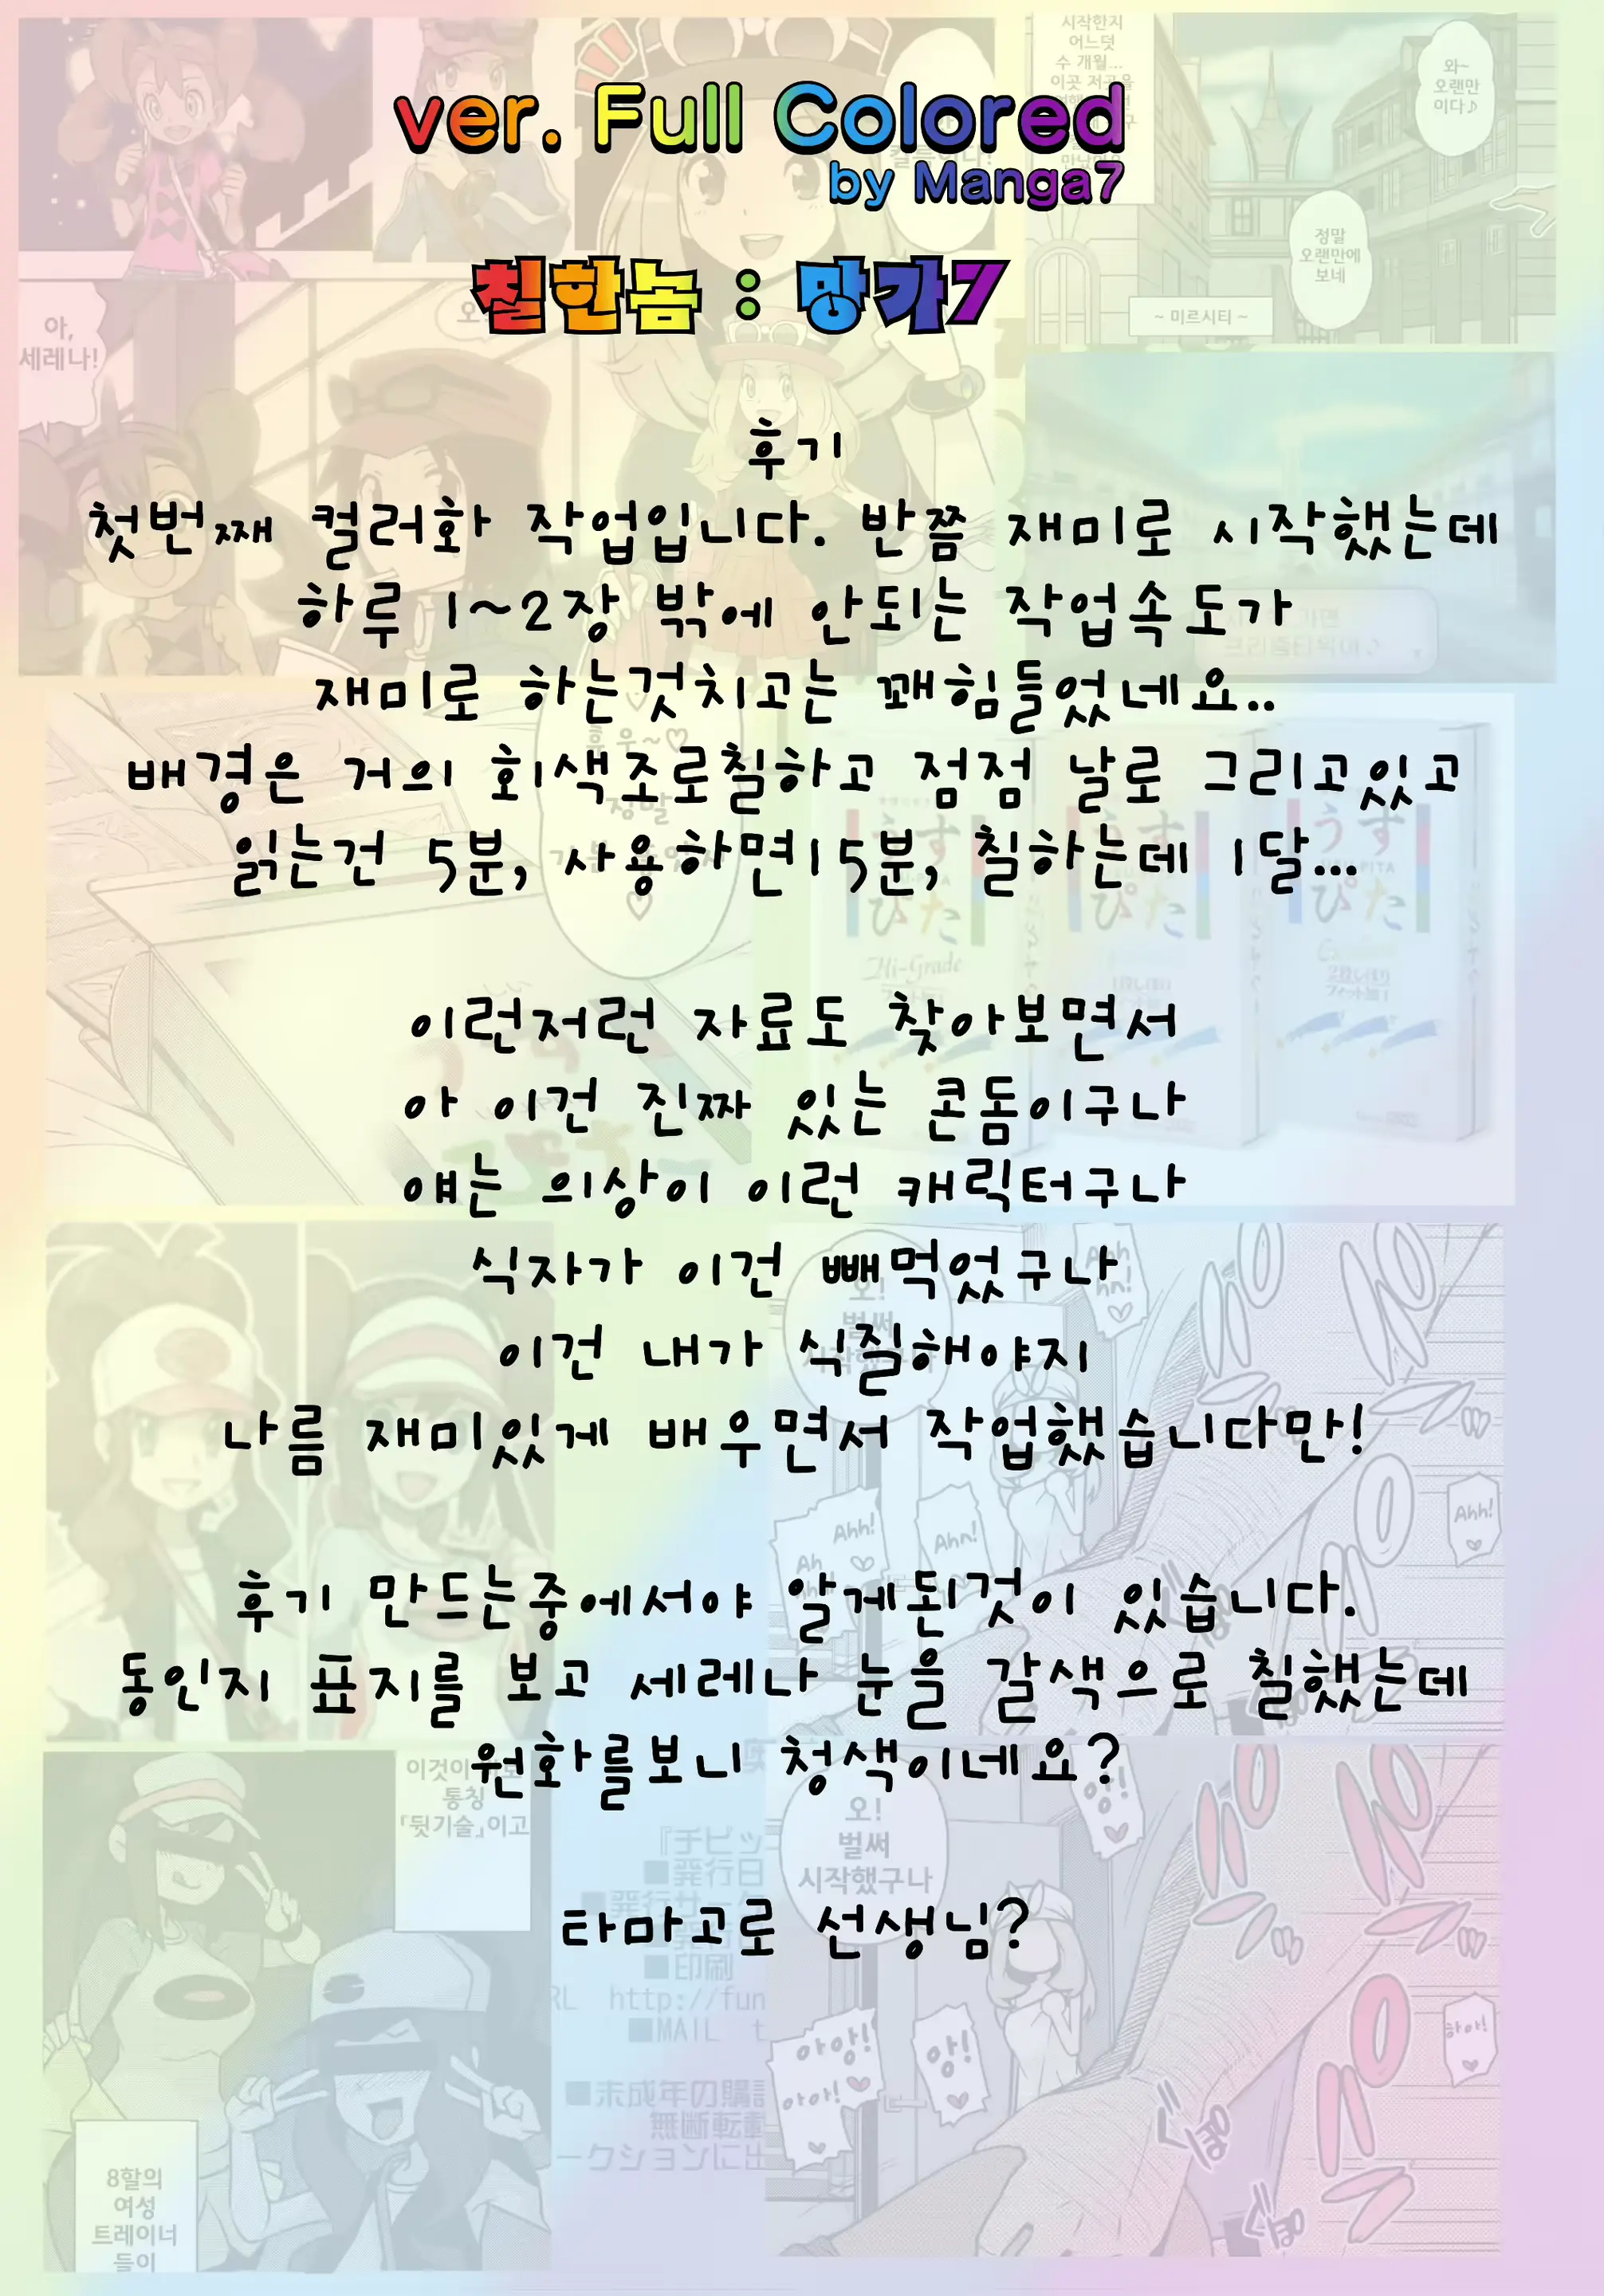 ver. Full Colored
by Manga7
칠한놈 : 망가7
후기
첫번째 컬러화 작업입니다. 반쯤 재미로 시작했는데
하루 1~2장 밖에 안되는 작업속도가
재미로 하는것치고는 꽤힘들었네요..
배경은 거의 회색조로칠하고 점점 날로 그리고있고
읽는건 5분, 사용하면15분, 칠하는데 1달...
이런저런 자료도 찾아보면서
아 이건 진짜 있는 콘돔이구나
얘는 의상이 이런 캐릭터구나
식자가 이건 빼먹었구나
이건 내가 식질해야지
나름 재미있게 배우면서 작업했습니다만!
후기 만드는중에서야 알게된것이 있습니다.
동인지 표지를 보고 세레나 눈을 갈색으로 칠했는데
원화를보니 청색이네요?
타마고로 선생님?
와~
오랜만
이다♪
정말
오랜만에
보네
~ 미르시티 ~
아,
세레나!
Hi-Grade
Ahh!
Ahn!
Ahh!
이것이
통칭
「뒷기술」이고
오!
벌써
시작했구나
앙!
아앙!
아아!
앙!
하아!
■発行日
■印刷
http://fun
■MAIL
■未成年の購
無断転載
8할의
여성
트레이너
들이